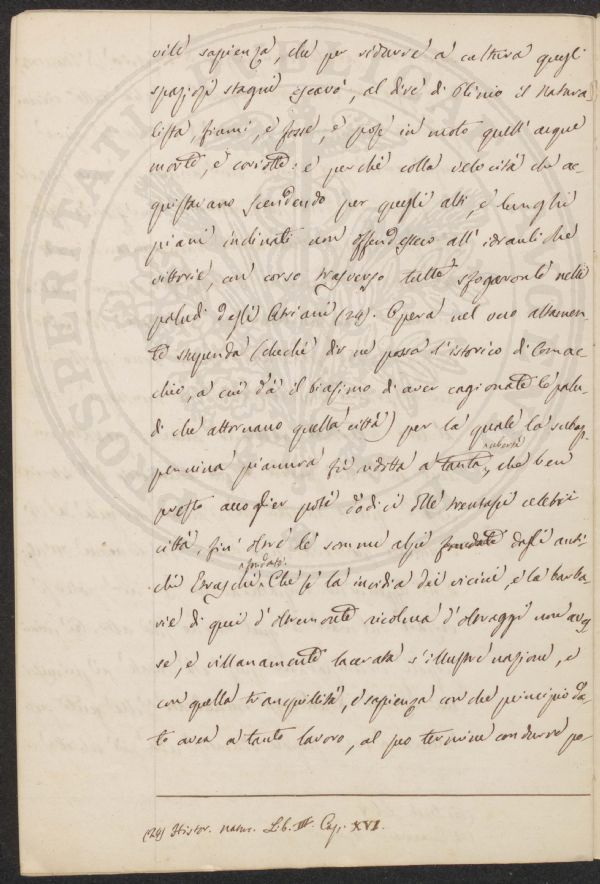 vile sapienza, che per ridurre a cultura quegli
spaziosi stagni escavò, al dire di Plinio il Natura
lista, fiumi, e fosse, e pose in moto quell'acque
morte, e corrotte: e perché colla velocità che ac-
quistavano scendendo per quegli alti, e lunghi
piani inclinati non offendessero all'idrauliche
vittorie, con corso trasverso tutte sfogaronle nelle
paludi degli Atriani (24). Opera nel vero altamen-
te stupenda (checché dir ne possa l'istorico di Comac
chio, a cui dà il biasimo di aver cagionate le palu-
di che attornano quella città) per la quale la subap-
pennina pianura fu ridotta a tanta ubertà, che ben
presto accoglier poté dodici delle trentasei celebri
città, fin' oltre le somme alpi fondate dagli anti
chi Etraschi fondate. Che se la invidia dei vicini, e la barba-
rie di quei d'oltremonte ricolma d'oltraggi non aves
se, e villanamente lacerata s'illustre nazione, e
con quella tranquillità, e sapienza con che principio da-
to avea a tanto lavoro, al suo termine condurre po-
(24) Histor. natur. Lib. III. Cap. XVI.
PROSPERITATI